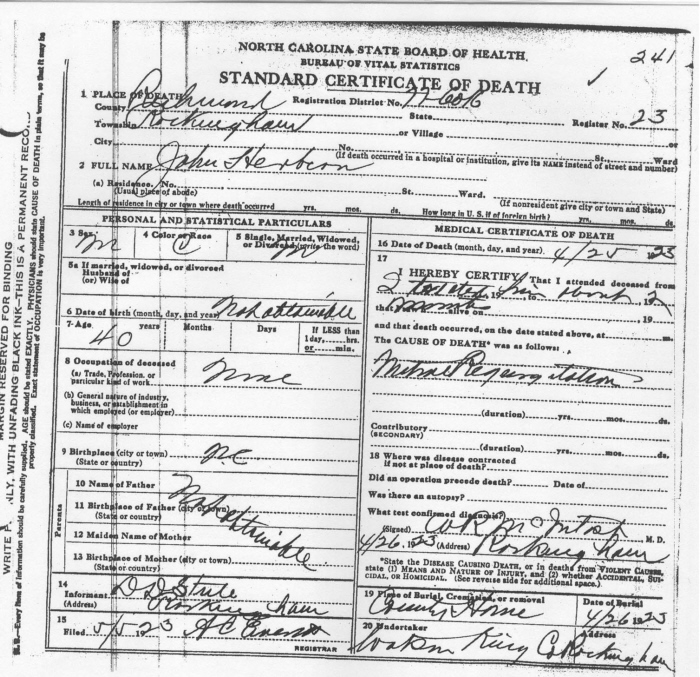 241
NORTH CAROLINA STATE BOARD OF HEALTH
BUREAU OF VITAL STATISTICS
STANDARD CERTIFICATE OF DEATH
1 PLACE OF DEATH
County Richmond Registration District No. State Register No. 23
Township Rockingham or Village or
City No. St. Ward
(If death occurred in a hospital or institution, give its NAME instead of street and number)
2 FULL NAME John
(a) Residence. No. St. Ward.
(Usual place of abode) (If nonresident give city or town and State)
Length of residence in city or town where death occurred yrs. mos. ds. How long in U. S. if of foreign birth? yrs. mos. ds.
PERSONAL AND STATISTICAL PARTICULARS
3 Sex 4 Color or Race 5 Single, Married, Widowed,
or Divorced (write the word)
M C M
5a If married, widowed, or divorced
Husband of
(or) Wife of
6 Date of birth (month, day, and year) Not obtainable
7-Age years Months Days If LESS than
40 1 day, hrs.
or min.
8 Occupation of deceased
(a) Trade, Profession, or
particular kind of work
(b) General nature of industry,
business, or establishment in
which employed (or employer)
(c) Name of employer
9 Birthplace (city or town) NC
(State or country)
Parents
10 Name of Father
11 Birthplace of Father (city or town)
(State or country)
Not obtainable
12 Maiden Name of Mother
13 Birthplace of Mother (city or town)
(State or country)
14
Informant
(Address) Rockingham
15
Filed 5/5 1923 A C
REGISTRAR
MEDICAL CERTIFICATE OF DEATH
16 Date of Death (month, day, and year) 4/25 1923
17
I HEREBY CERTIFY That I attended deceased from
19 to
that alive on 19
and that death occurred, on the date stated above, at m.
The CAUSE OF DEATH* was as follows:
Mitral Regurgitation
(duration) yrs. mos. ds.
Contributory
(SECONDARY)
(duration) yrs. mos. ds.
18 Where was disease contracted
if not at place of death?
Did an operation precede death? Date of
Was there an autopsy?
What test confirmed diagnosis?
(Signed) McIntosh M. D.
4/26, 1923 (Address) Rockingham
*State the DISEASE CAUSING DEATH, or in deaths from VIOLENT CAUSES,
state (1) MEANS AND NATURE OF INJURY, and (2) whether ACCIDENTAL, SUI-
CIDAL, or HOMICIDAL. (See reverse side for additional space.)
19 Place of Burial, Cremation, or removal Date of Burial
County Home 4/26 1923
20 Undertaker Address
Watson King Co Rockingham
MARGIN RESERVED FOR BINDING
NLY, WITH UNFADING BLACK INK—THIS IS A PERMANENT RECORD
N. B.—Every item of information should be carefully supplied. AGE should be stated EXACTLY. PHYSICIANS should state CAUSE OF DEATH in plain terms, so that it may be
properly classified. Exact statement of OCCUPATION is very important.